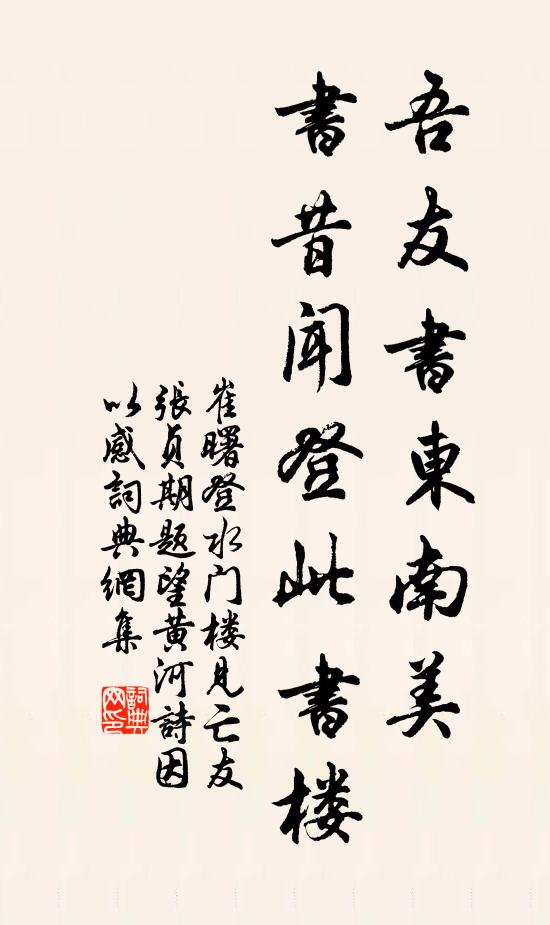 吾友書東南美
書昔聞登此書楼
崔曙登水门楼見亡友
張貞期題望黄河詩因
以感詞典網集
詞典网印